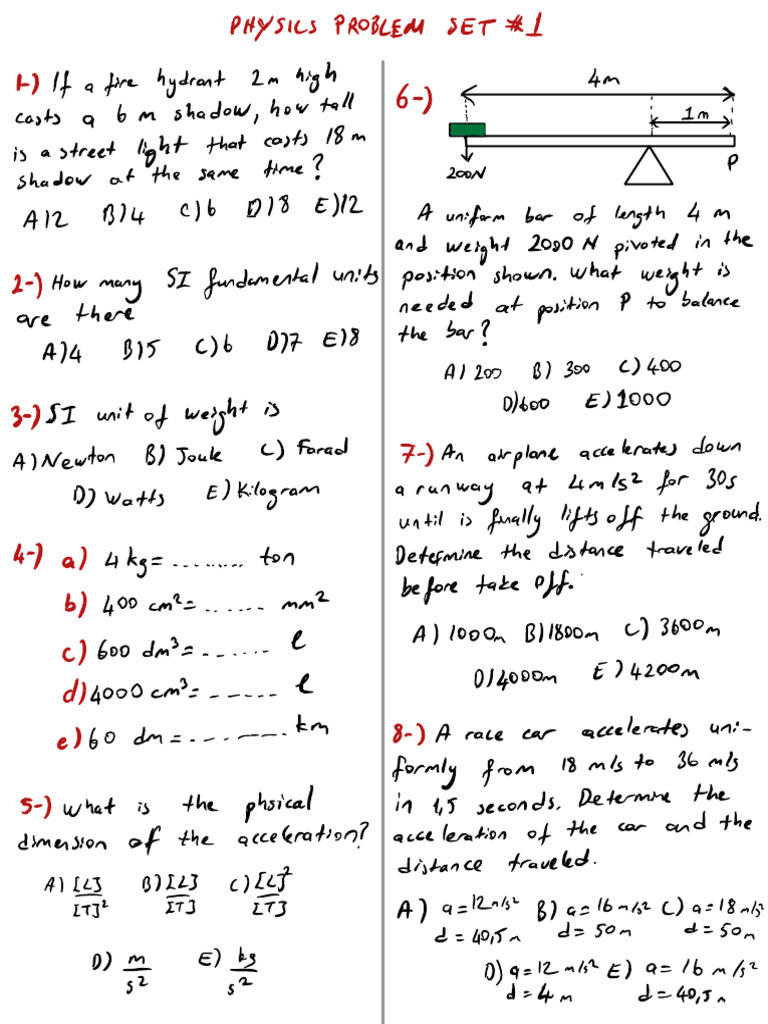 PHYSICS PROBLEM SET #1
1-) If a fire hydrant 2m high
casts a 6 m shadow, how tall
is a street light that casts 18 m
shadow at the same time?
A)2 B)4 C)6 D)8 E)12
2-) How many SI fundamental units
are there
A)4 B)5 C)6 D)7 E)8
3-) SI unit of weight is
A) Newton B) Joule C) Farad
D) Watts E) Kilogram
4-) a) 4 kg = ......... ton
b) 400 cm² = ....... mm²
c) 600 dm³ = ....... l
d) 4000 cm³ = ...... l
e) 60 dm = .......... km
5-) What is the phsical
dimension of the acceleration?
A) [L]/[T]² B) [L]/[T] C) [L]²/[T]
D) m/s² E) kg/s²
6-) 4m
1m
200N
P
A uniform bar of length 4 m
and weight 2000 N pivoted in the
position shown. What weight is
needed at position P to balance
the bar?
A) 200 B) 300 C) 400
D) 600 E) 1000
7-) An airplane accelerates down
a runway at 4m/s² for 30s
until is finally lifts off the ground.
Determine the distance traveled
before take off.
A) 1000m B) 1800m C) 3600m
D) 4000m E) 4200m
8-) A race car accelerates uni-
formly from 18 m/s to 36 m/s
in 1,5 seconds. Determine the
acceleration of the car and the
distance traveled.
A) a=12 m/s² B) a=16 m/s² C) a=18 m/s²
d=40,5m d=50m d=50m
D) a=12 m/s² E) a=16 m/s²
d=4m d=40,5m